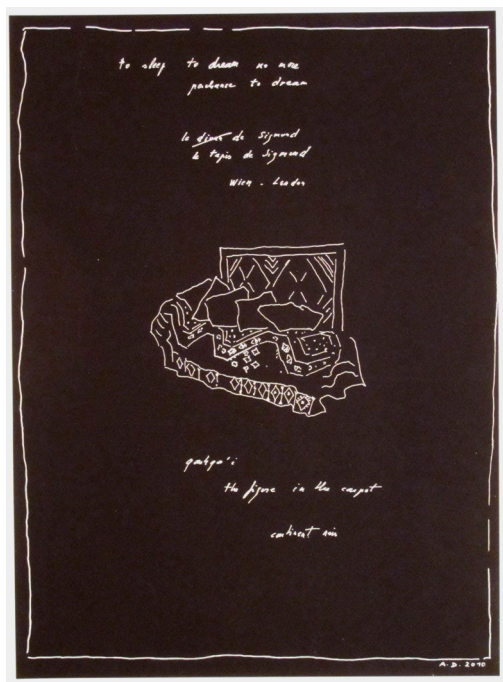 to sleep to dream no more
perchance to dream
le divan de Sigmund
le tapis de Sigmund
Wien - London
qashqa'i
the figure in the carpet
continent noir
A.D. 2010